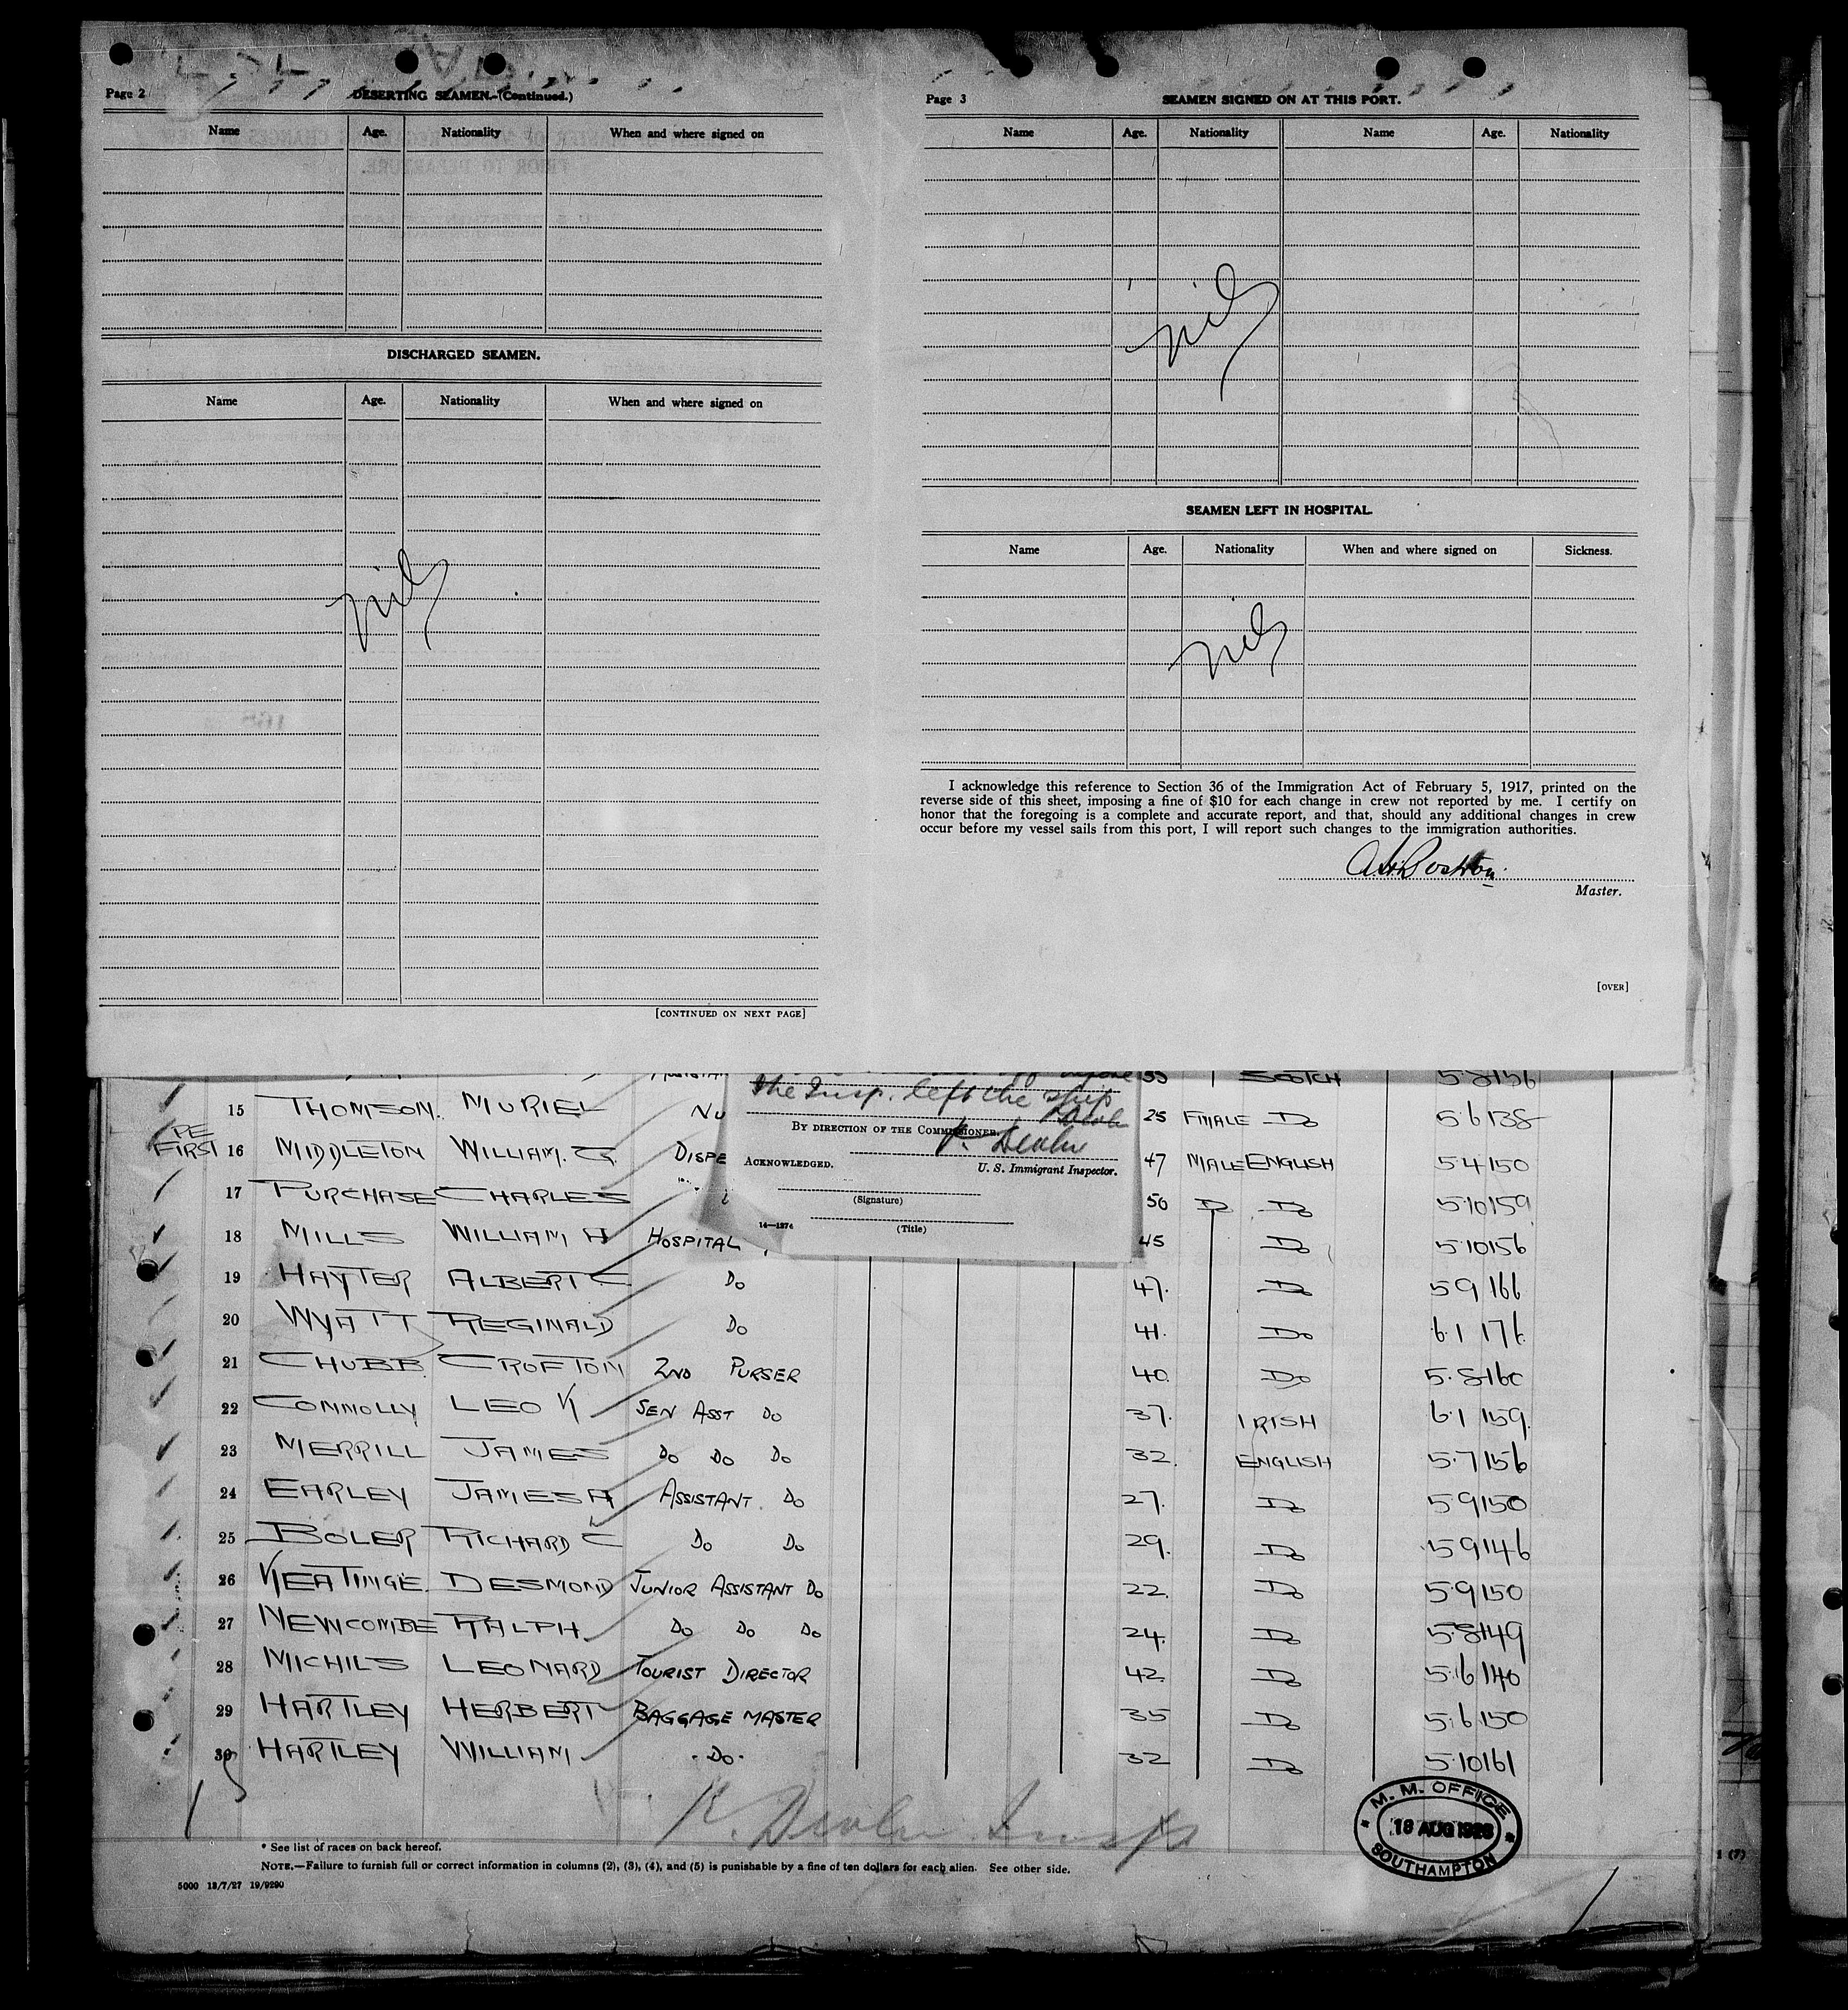 Page 2
DESERTING SEAMEN.-(Continued.)
Name Age. Nationality When and where signed on
DISCHARGED SEAMEN.
Name Age. Nationality When and where signed on
nil
[CONTINUED ON NEXT PAGE]
Page 3
SEAMEN SIGNED ON AT THIS PORT.
Name Age. Nationality Name Age. Nationality
nil
SEAMEN LEFT IN HOSPITAL.
Name Age. Nationality When and where signed on Sickness.
nil
I acknowledge this reference to Section 36 of the Immigration Act of February 5, 1917, printed on the
reverse side of this sheet, imposing a fine of $10 for each change in crew not reported by me. I certify on
honor that the foregoing is a complete and accurate report, and that, should any additional changes in crew
occur before my vessel sails from this port, I will report such changes to the immigration authorities.
Master.
[OVER]
SCOTCH
the Insp. left the ship
BY DIRECTION OF THE COMMISSIONER.
ACKNOWLEDGED.
U. S. Immigrant Inspector.
(Signature)
14—1274
(Title)
15 THOMSON. MURIEL NU 25 FMALE DO 5 6 138
PE
FIRST 16 MIDDLETON WILLIAM. G. DISPE 47 MALE ENGLISH 5 4 150
17 PURCHASE CHARLES 50 DO DO 5 10 159
18 MILLS WILLIAM H HOSPITAL 45 DO 5 10 156
19 HAYTER ALBERT C DO 47. DO 5 9 166
20 WYATT REGINALD DO 41. DO 6.1 176
21 CHUBB CROFTON 2ND PURSER 40. DO 5.8 160
22 CONNOLLY LEO K SEN ASST DO 37. IRISH 6.1 159.
23 MERRILL JAMES DO DO DO 32. ENGLISH 5.7 156
24 EARLEY JAMES A ASSISTANT. DO 27. DO 5 9 150
25 BOLER RICHARD C DO DO 29. DO 5 9 146
26 KEATINGE DESMOND JUNIOR ASSISTANT DO 22. DO 5.9 150
27 NEWCOMBE RALPH. DO DO DO 24. DO 5.8 149
28 MICHILS LEONARD TOURIST DIRECTOR 42. DO 5.6 140
29 HARTLEY HERBERT BAGGAGE MASTER 35 DO 5.6 150
30 HARTLEY WILLIAM DO. 32 DO 5.10 161
M. M. OFFICE
18 AUG 1928
SOUTHAMPTON
* See list of races on back hereof.
NOTE.—Failure to furnish full or correct information in columns (2), (3), (4), and (5) is punishable by a fine of ten dollars for each alien. See other side.
5000 13/7/27 19/9290